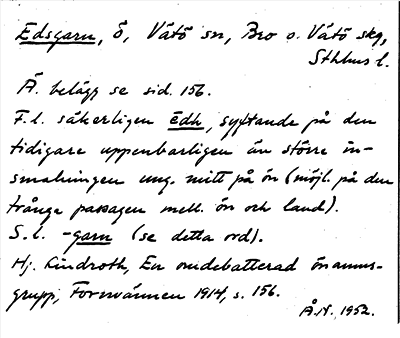 Edsgarn, ö, Vätö sn, Bro o. Vätö skg,
Sthlms l.
Ä. belägg se sid. 156.
F.l. säkerligen ēdh, syftande på den
tidigare uppenbarligen än större in-
smalningen ung. mitt på ön (möjl. på den
trånga passagen mell. ön och land).
S.l. -garn (se detta ord).
Hj. Lindroth, En omdebatterad önamns-
grupp, Fornvännen 1914, s. 156.
Å.N. 1952.